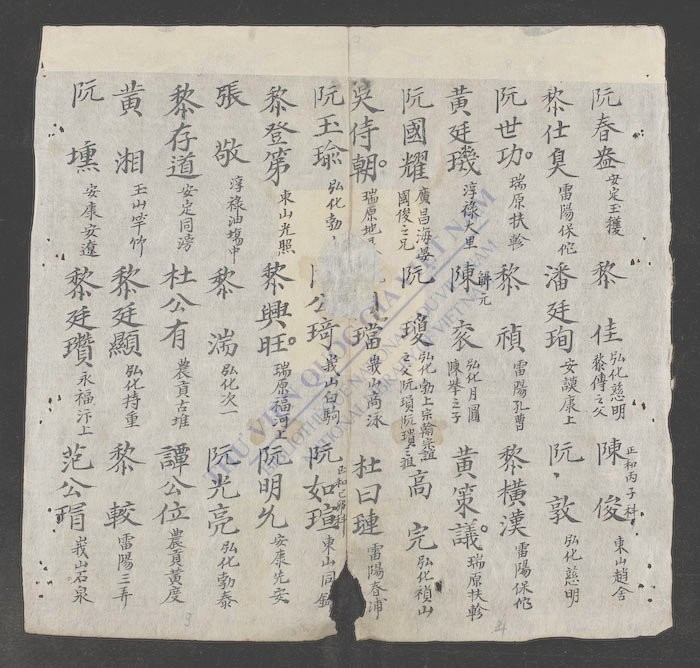 阮春盎 安定玉穫 黎佳 弘化慈明 黎傳之父 正和丙子科 陳俊 東山趙舍
黎仕臭 雷陽保佗 潘廷珣 安謨康上 阮敦 弘化慈明
阮世功 瑞原扶軫 黎禎 雷陽孔曹 黎橫漢 雷陽保佗
黃廷璣 淳祿大里 解元 陳衮 弘化月圓 陳舉之子 黃策議 瑞原扶軫
阮國耀 廣昌海晏 國俊之兄 阮瓊 弘化勃上宗翰崇誼 之父阮瑣阮璜之祖 高完 弘化禎山
吳侍朝 瑞原地 璫 峩山商泳 杜曰璉 雷陽春浦
阮玉瑜 弘化勃 公琦 峩山白駒 正和己卯科 阮如瑄 東山同
黎登第 東山光照 黎興旺 瑞原福河上 阮明允 安康先安
張敬 淳祿油塲中 黎湍 弘化次一 阮光亮 弘化勃泰
黎存道 安定同滂 杜公有 農貢古堆 譚公位 農貢黃度
黃湘 玉山竿竹 黎廷顯 弘化持重 黎較 雷陽三弄
阮壎 安康安遼 黎廷瓚 永福汴上 范公 峩山石泉
THƯ VIỆN QUỐC GIA VIỆT NAM
BIBLIOTHÈQUE NATIONALE DU VIETNAM
NATIONAL LIBRARY OF VIETNAM